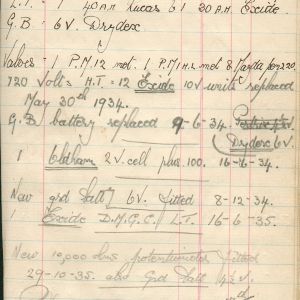 L.T. : 1 40 A.H. Lucas & 1 30 A.H. Exide.
G.B : 6 V. Drydex
Valves = 1 P.M 12 met. 1 P.M 1 H.L met & Mazda pen 220.
120 Volts H.T. = 12 Exide 10 V units replaced
May 30th 1934.
G.B battery replaced 9-6-34.
Drydex 6V
1 Oldham 2 V. cell plus 100. 16-6-34.
New grd batt 6V. fitted 8-12-34.
1 Exide D.M.G.C. L.T. 16-6-35.
New 10,000 ohms potentiometer fitted
29-10-35. also Grd batt 4½ v.